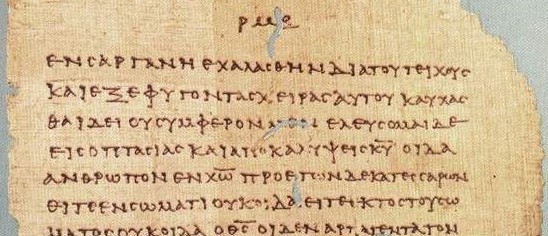 ΡΜΕ
ΕΝϹΑΡΓΑΝΗ ΕΧΑΛΑϹΘΗΝ ΔΙΑΤΟΥΤΕΙΧΟΥϹ
ΚΑΙΕΞΕΦΥΓΟΝΤΑϹΧΕΙΡΑϹΑΥΤΟΥ ΚΑΥΧΑϹ
ΘΑΙΔΕΙ ΟΥϹΥΜΦΕΡΟΝ ΕΛΕΥϹΟΜΑΙΔΕ
ΕΙϹΟΠΤΑϹΙΑϹ ΚΑΙΑΠΟΚΑΛΥΨΕΙϹΚ̅Υ̅ ΟΙΔΑ
ΑΝΘΡΩΠΟΝ ΕΝΧ̅Ω̅ ΠΡΟΕΤΩΝΔΕΚΑΤΕϹϹΑΡΩΝ
ΕΙΤΕΕΝϹΩΜΑΤΙΟΥΚΟΙΔΑ ΕΙΤΕΕΚΤΟϹΤΟΥϹΩ
ΜΑΤΟϹΟΥΚΟΙΔΑ ΟΘ̅Ϲ̅ ΟΙΔΕΝΑΡΠΑΓΕΝΤΑΤΟΝ